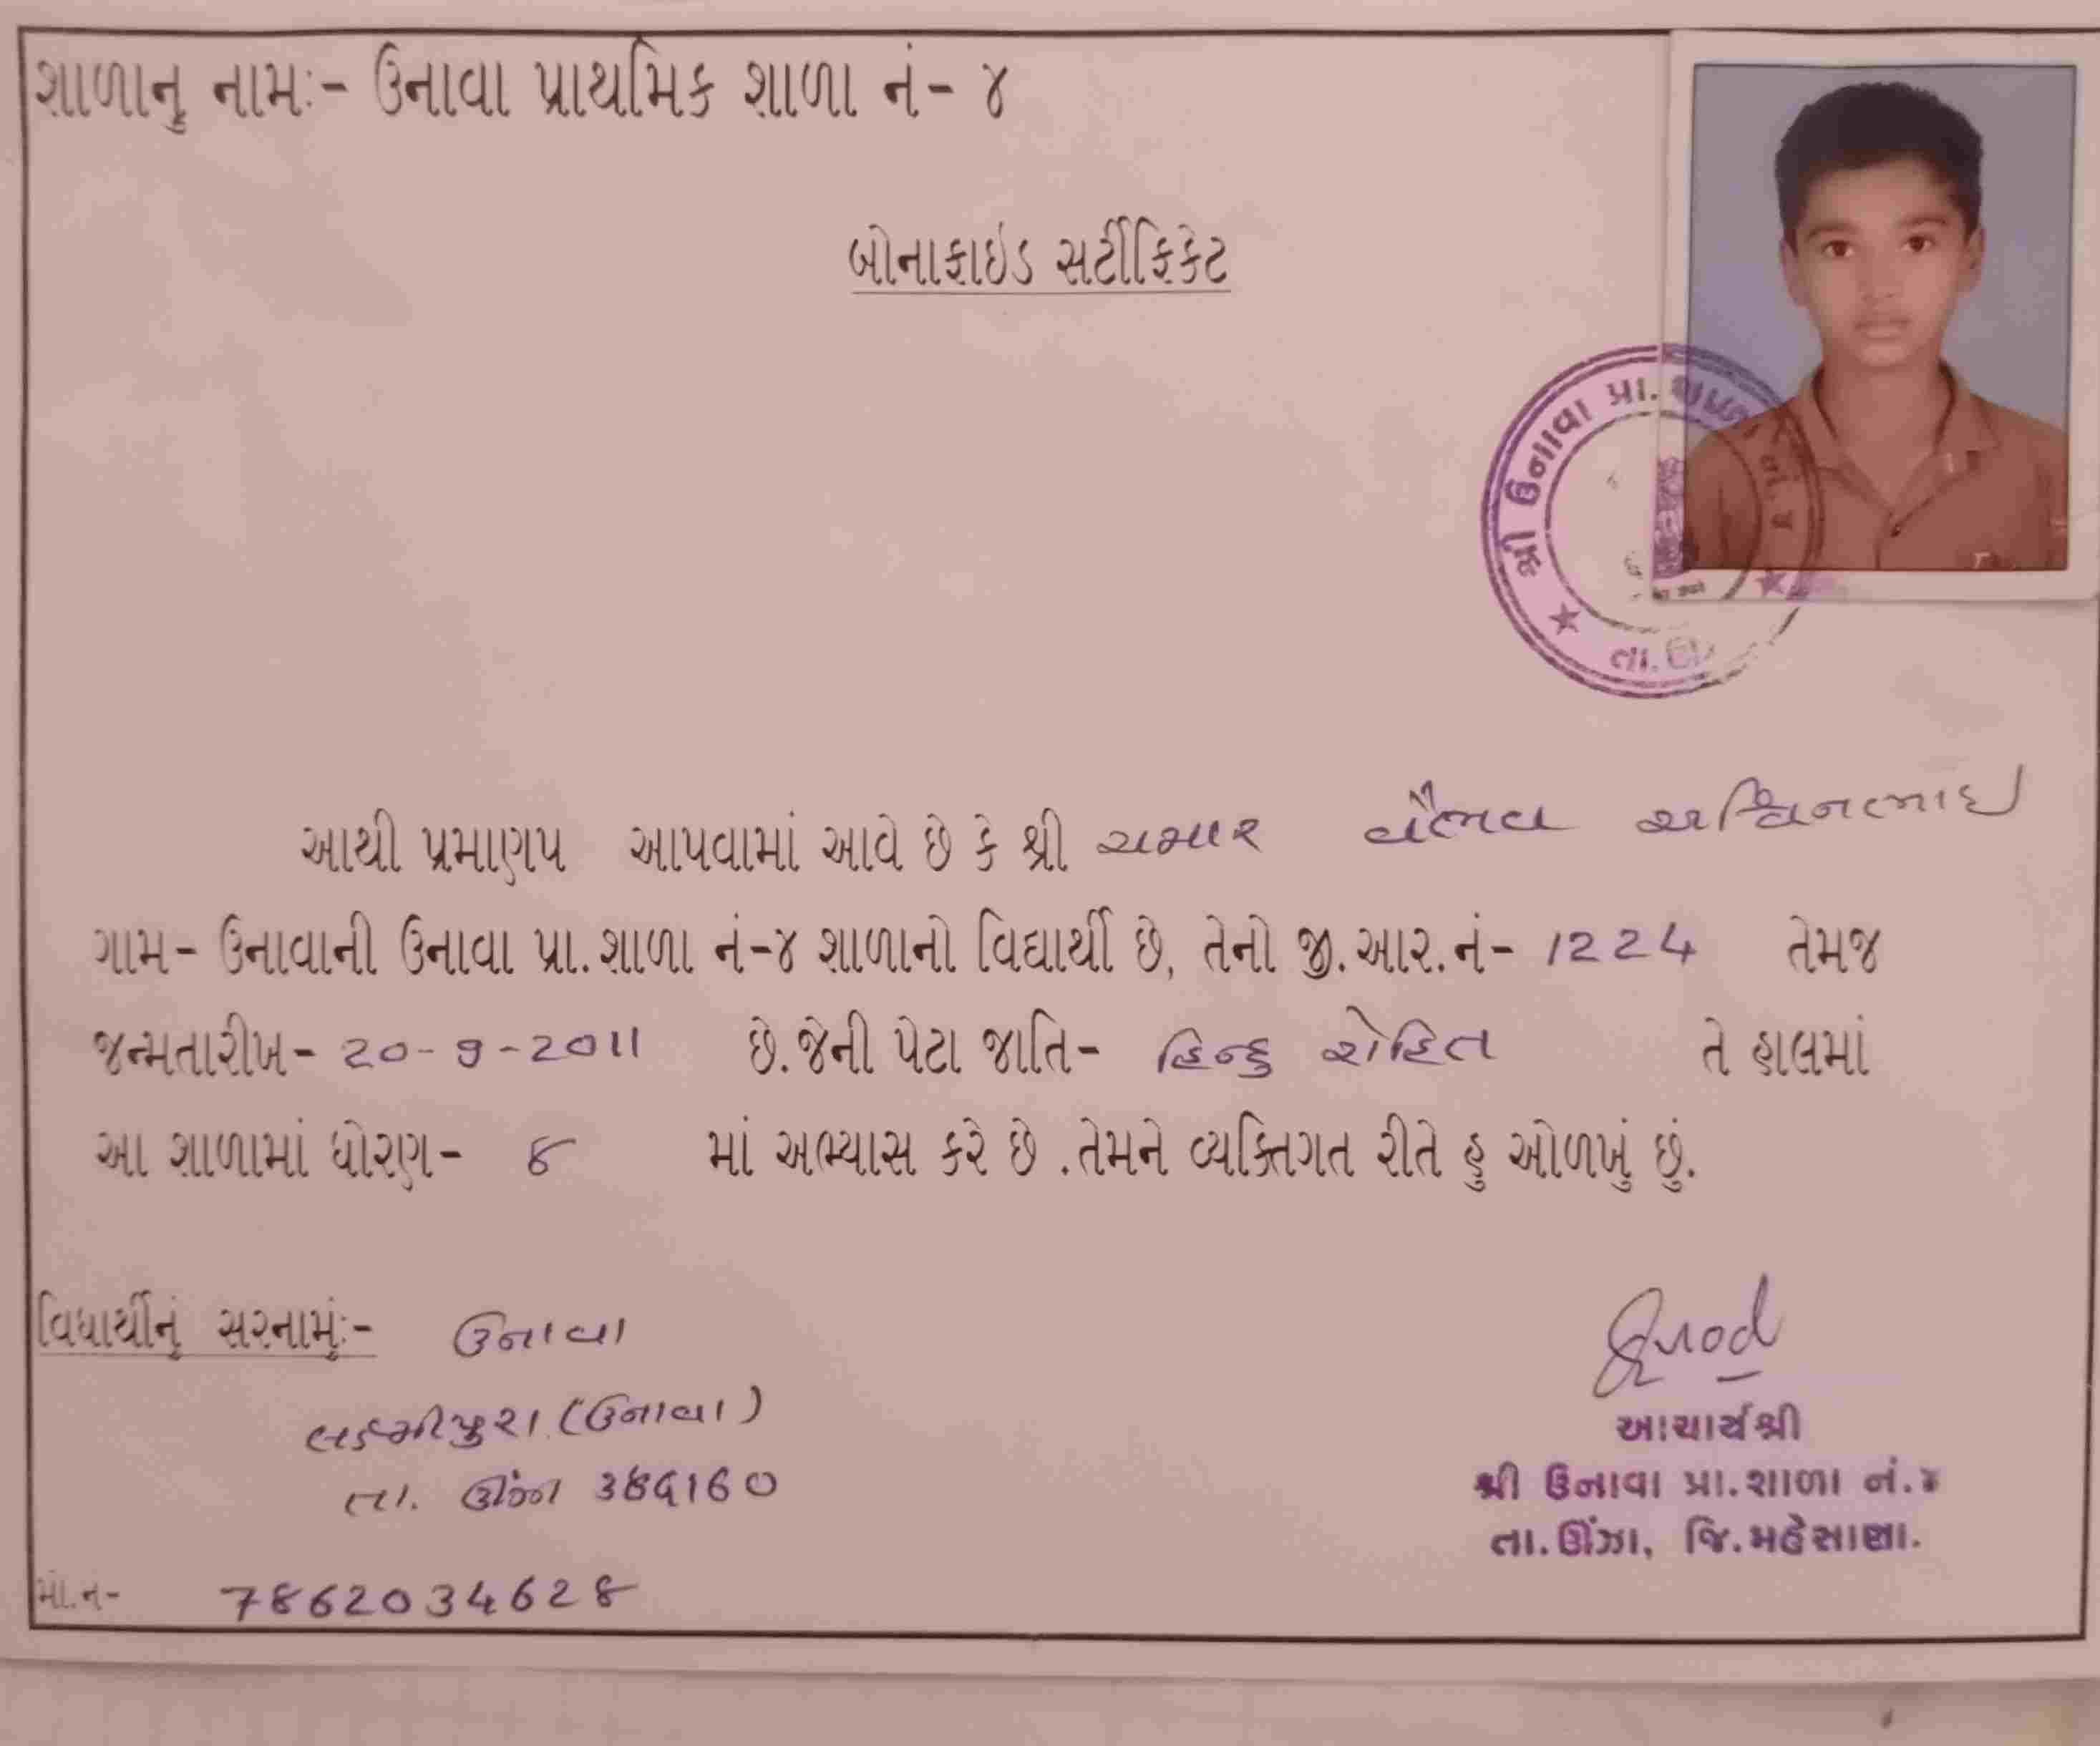 શાળાનુ નામઃ- ઉનાવા પ્રાથમિક શાળા નં- ૪
બોનાફાઇડ સર્ટીફિકેટ
શ્રી ઉનાવા પ્રા. શાળા નં. ૪
તા.
આથી પ્રમાણપ આપવામાં આવે છે કે શ્રી ચમાર વૈભવ અશ્વિનભાઇ
ગામ- ઉનાવાની ઉનાવા પ્રા.શાળા નં-૪ શાળાનો વિદ્યાર્થી છે, તેનો જી.આર.નં- 1224 તેમજ
જન્મતારીખ- 20-9-2011 છે.જેની પેટા જાતિ- હિન્દુ રોહિત તે હાલમાં
આ શાળામાં ધોરણ- 8 માં અભ્યાસ કરે છે .તેમને વ્યક્તિગત રીતે હુ ઓળખું છું.
વિધાર્થીનું સરનામું:- ઉનાવા
લક્ષ્મીપુરા (ઉનાવા)
તા. ઊંઝા 384160
મો.ન- 7862034628
આચાર્યશ્રી
શ્રી ઉનાવા પ્રા.શાળા નં.૪
તા.ઊંઝા, જિ.મહેસાણા.